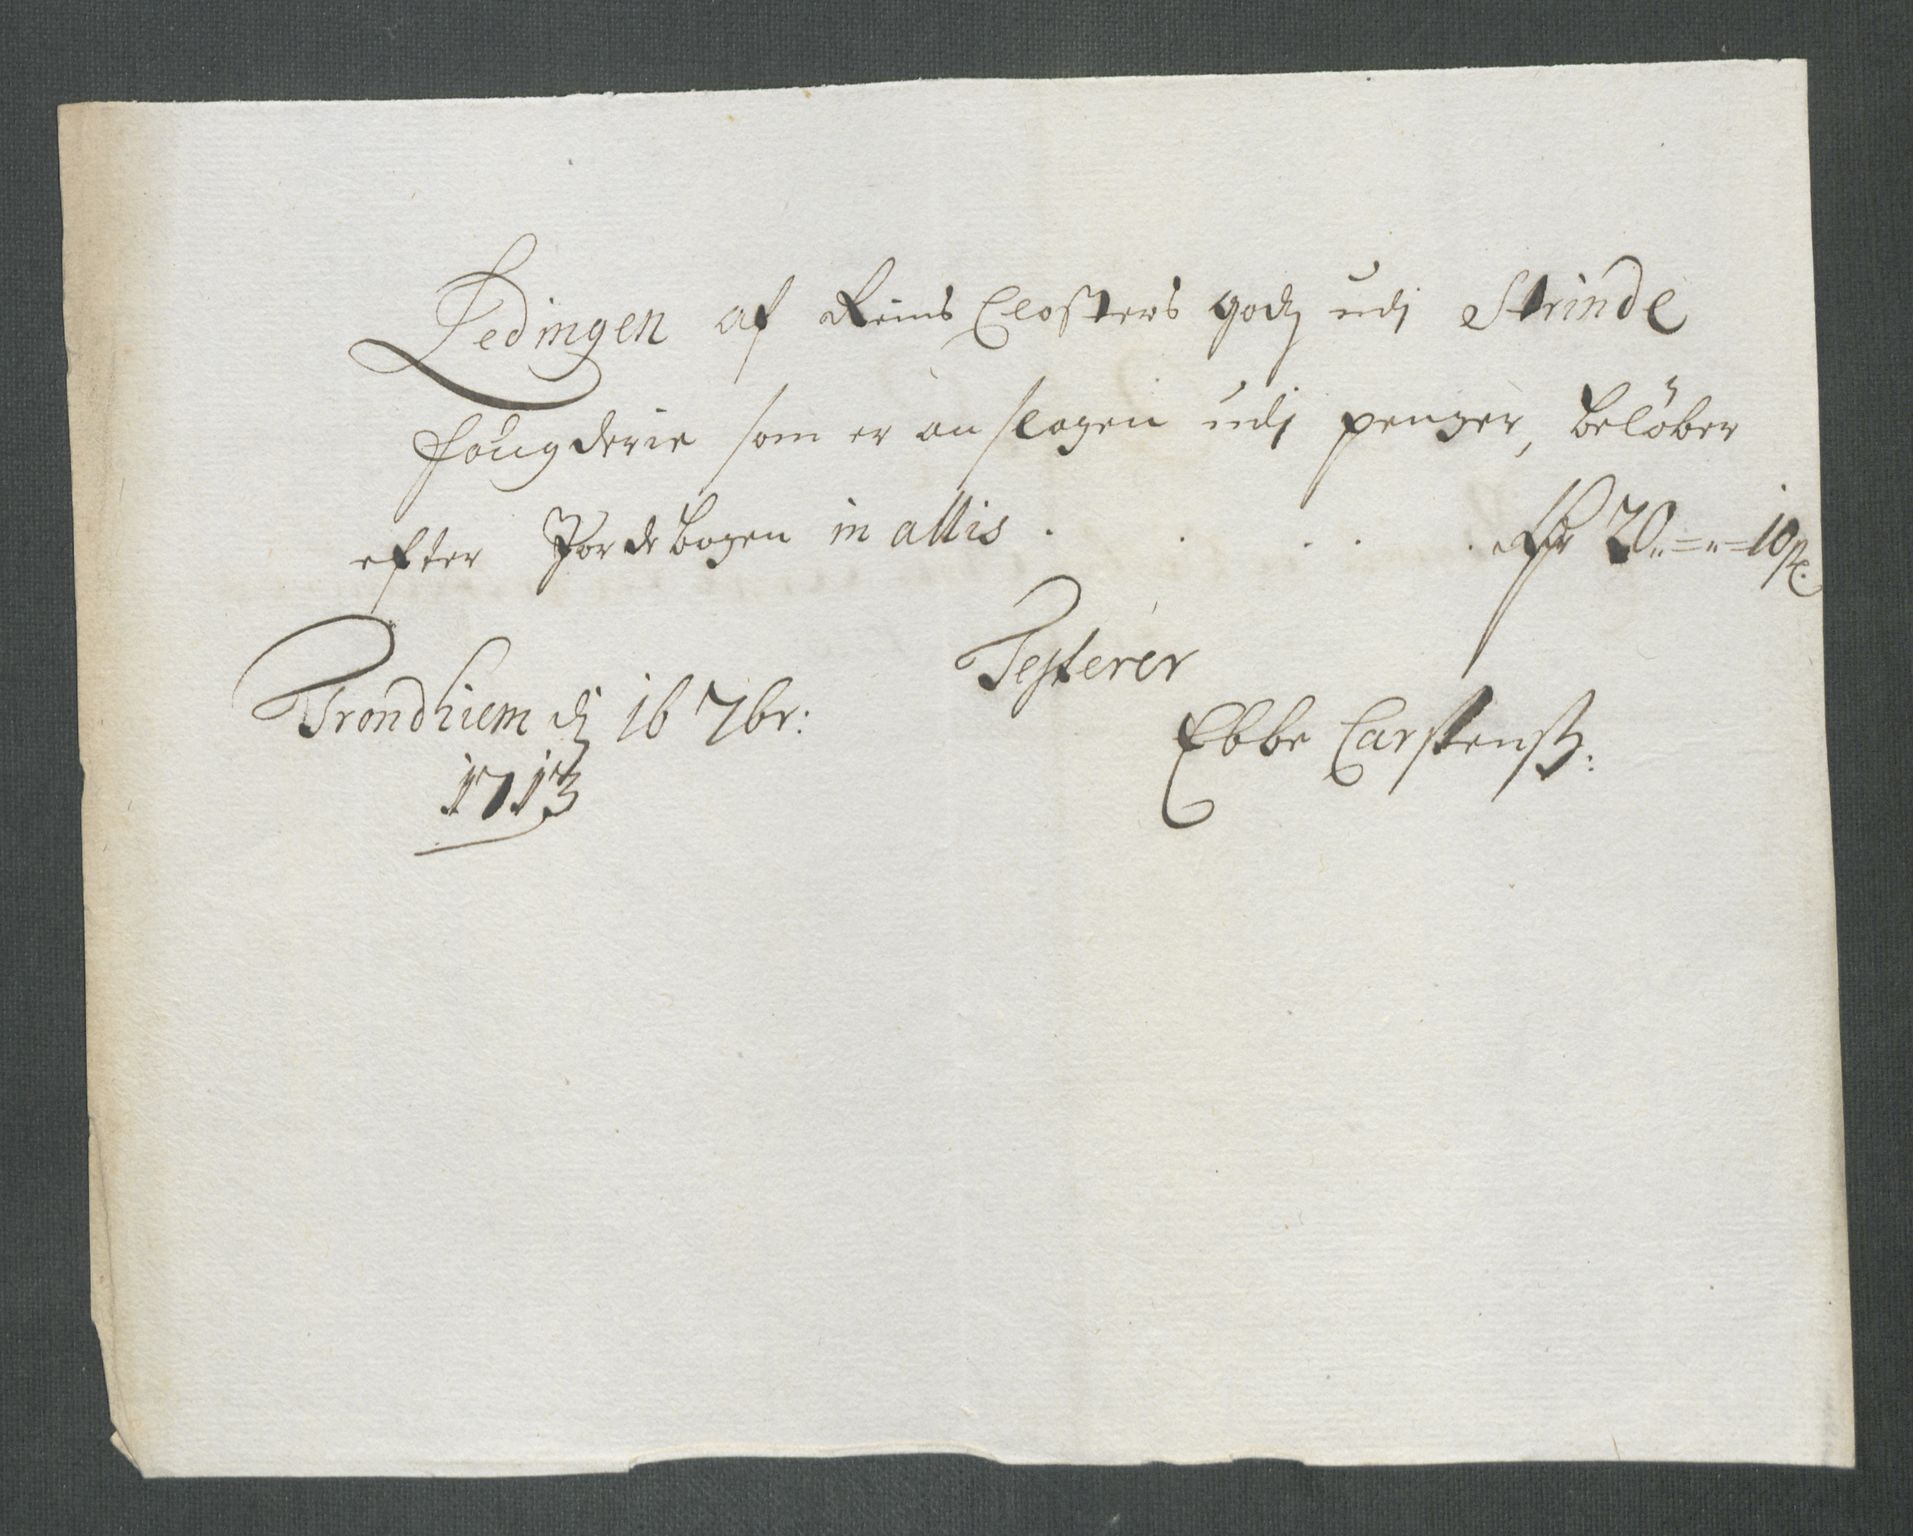 Ledingen af Reins Closters godz udj Strinde
fougderie som er anslagen udj penger, beløber
efter Jordebogen in allis . . . . . . Rdr 20„=„=10β.
Testerer
Trondhiem dj 16 7br:
1713
Ebbe Carstenß: